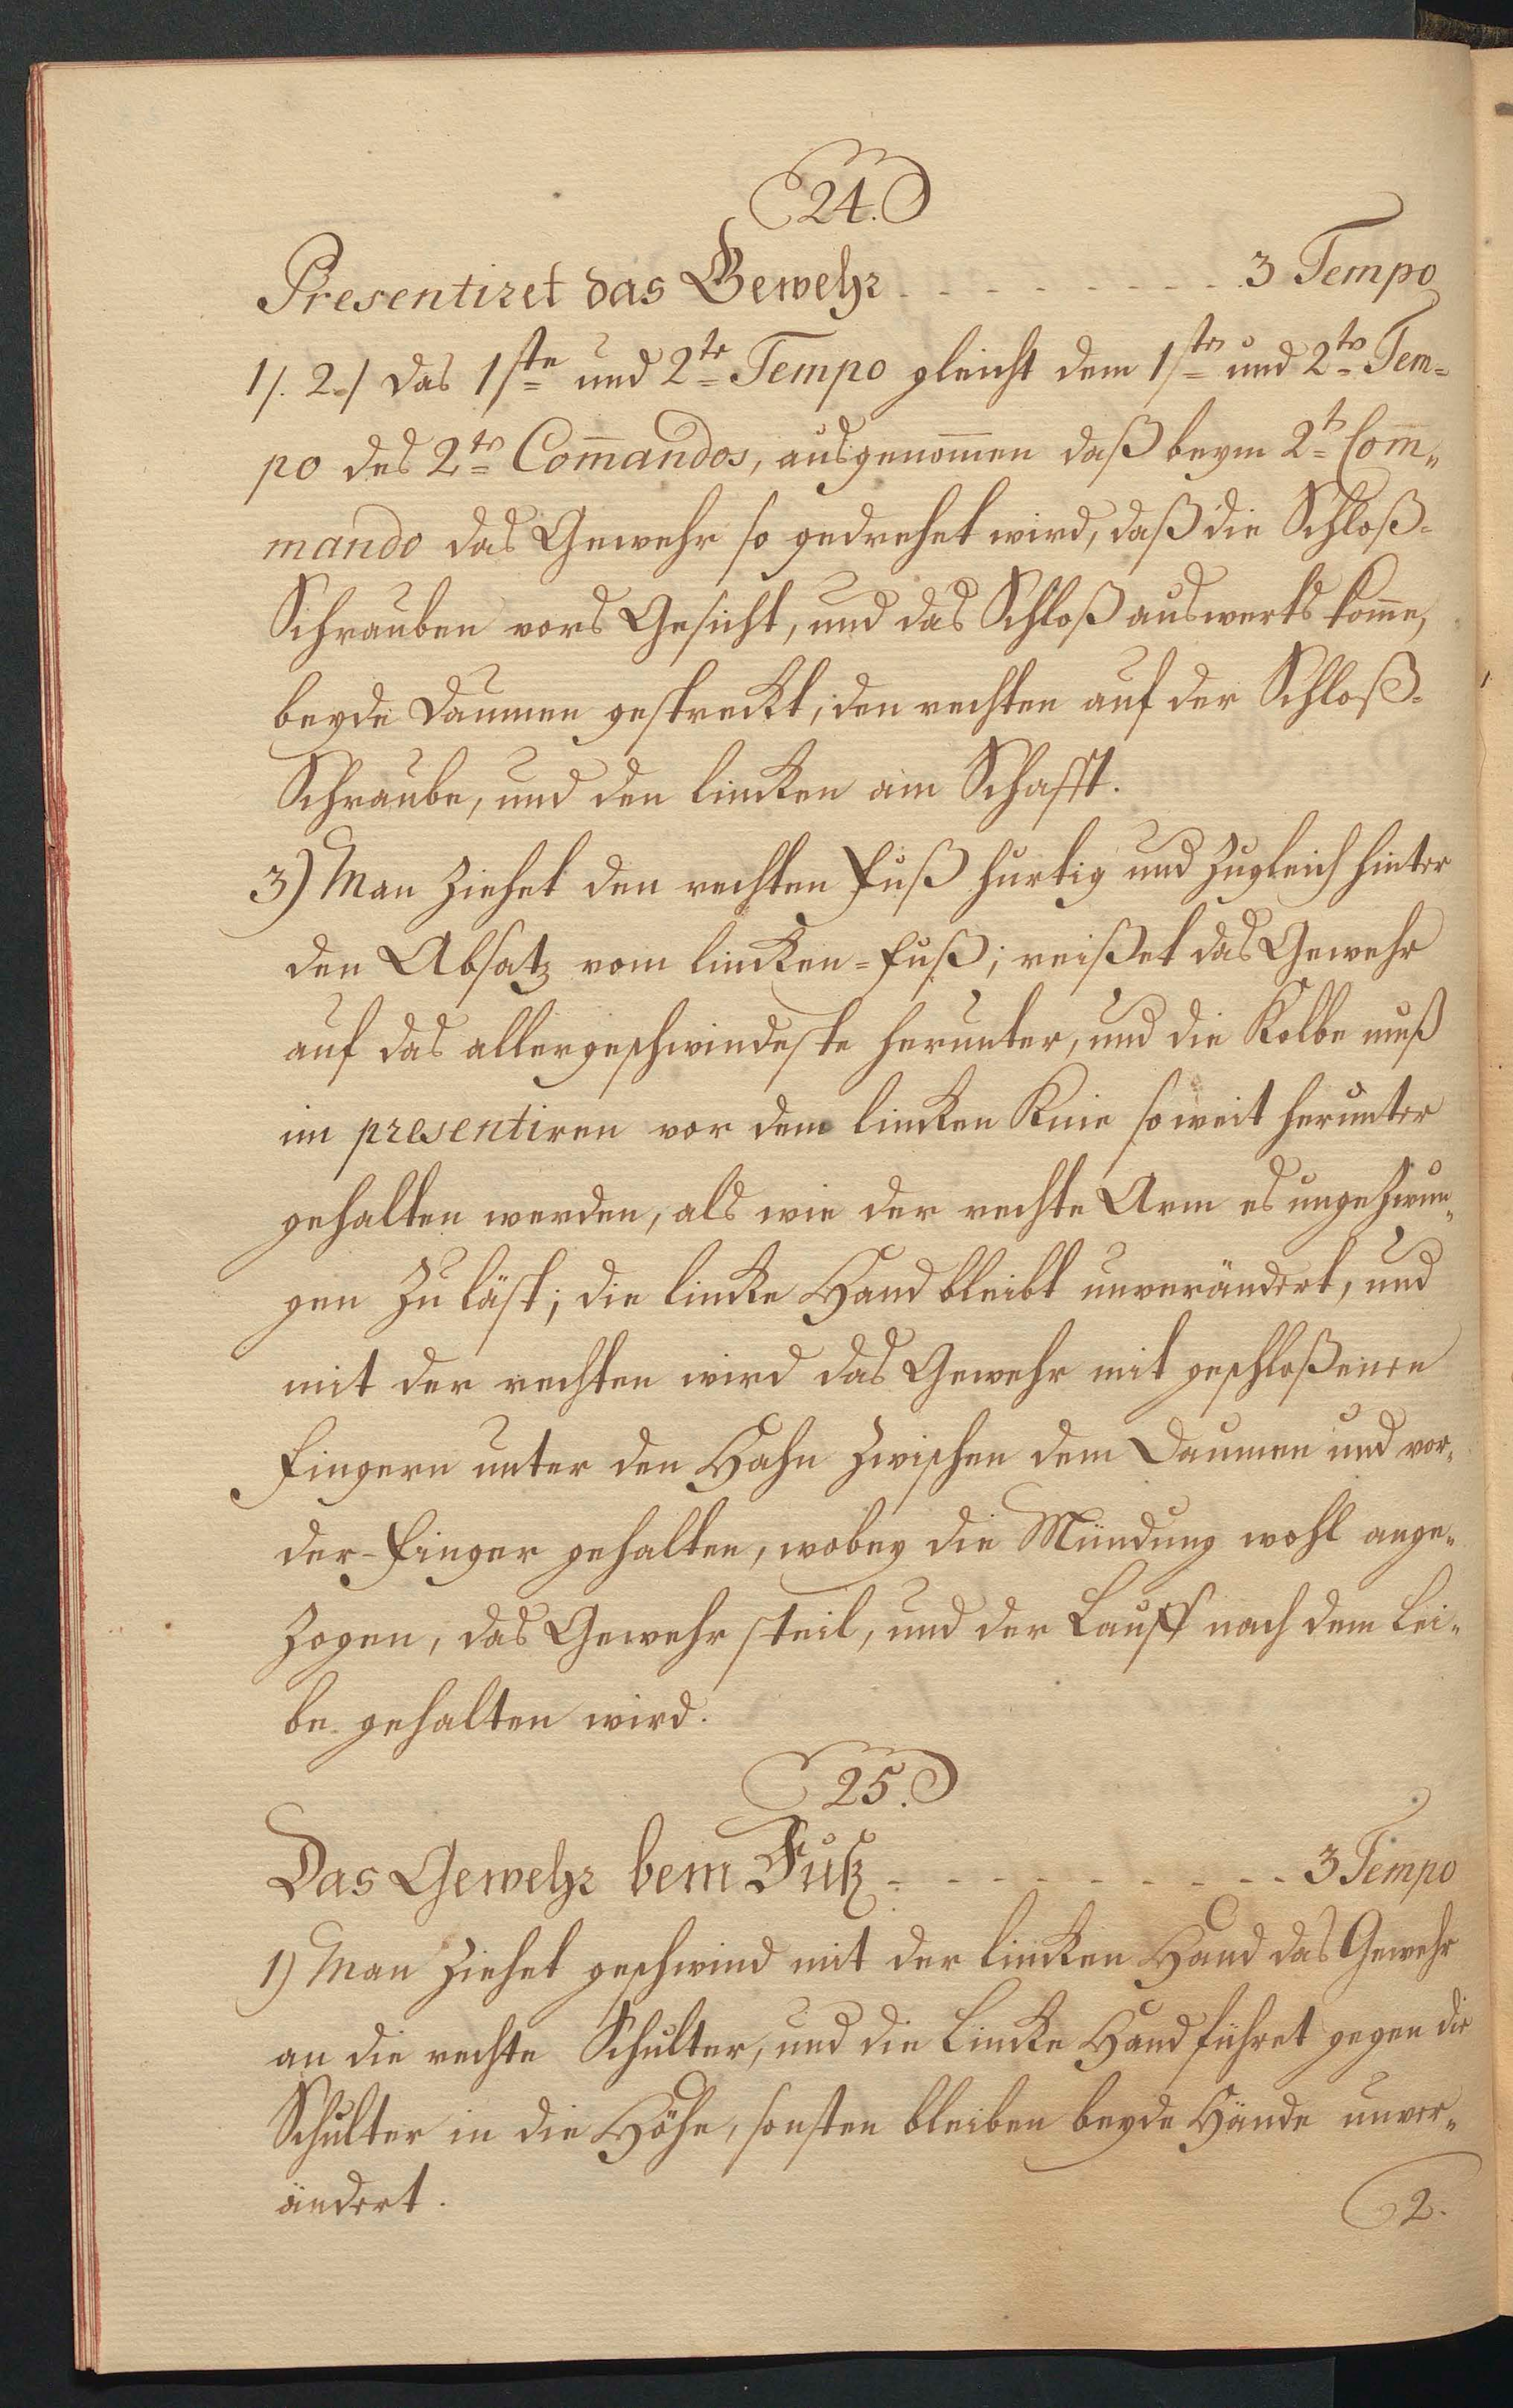 24.
Presentiret das Gewehr - - - - - - - - - 3 Tempo
1/. 2./ Das 1ste und 2te Tempo gleicht dem 1sten und 2ten Tem=
po des 2ten Com̄andos, ausgenom̄en daß beym 2t Com̄„
mando das Gewehr so gedrehet wird, daß die Schloß=
Schrauben vors Gesicht, und das Schloß auswerts kom̄e,
beyde Daumen gestreckt, den rechten auf der Schloß=
Schraube, und den lincken am Schafft.
3) Man ziehet den rechten Fuß hurtig und zugleich hinter
den Absatz vom lincken=Fuß; reißet das Gewehr
auf das allergeschwindeste herunter, und die Kolbe muß
im presentiren vor dem lincken Knie so weit herunter
gehalten werden, als wie der rechte Arm es ungezwun„
gen zu läst; die lincke Hand bleibt unverändert, und
mit der rechten wird das Gewehr mit geschloßenen
Fingern unter den Hahn zwischen dem Daumen und vor„
der-Finger gehalten, wobey die Mündung wohl ange„
zogen, das Gewehr steil, und der Lauff nach dem Lei„
be gehalten wird.
25.
Das Gewehr beim Fuß - - - - - - - - - 3 Tempo
1) Man ziehet geschwind mit der lincken Hand das Gewehr
an die rechte Schulter, und die Lincke Hand führet gegen die
Schulter in die Höhe, sonsten bleiben beyde Hände unver„
ändert.
2.